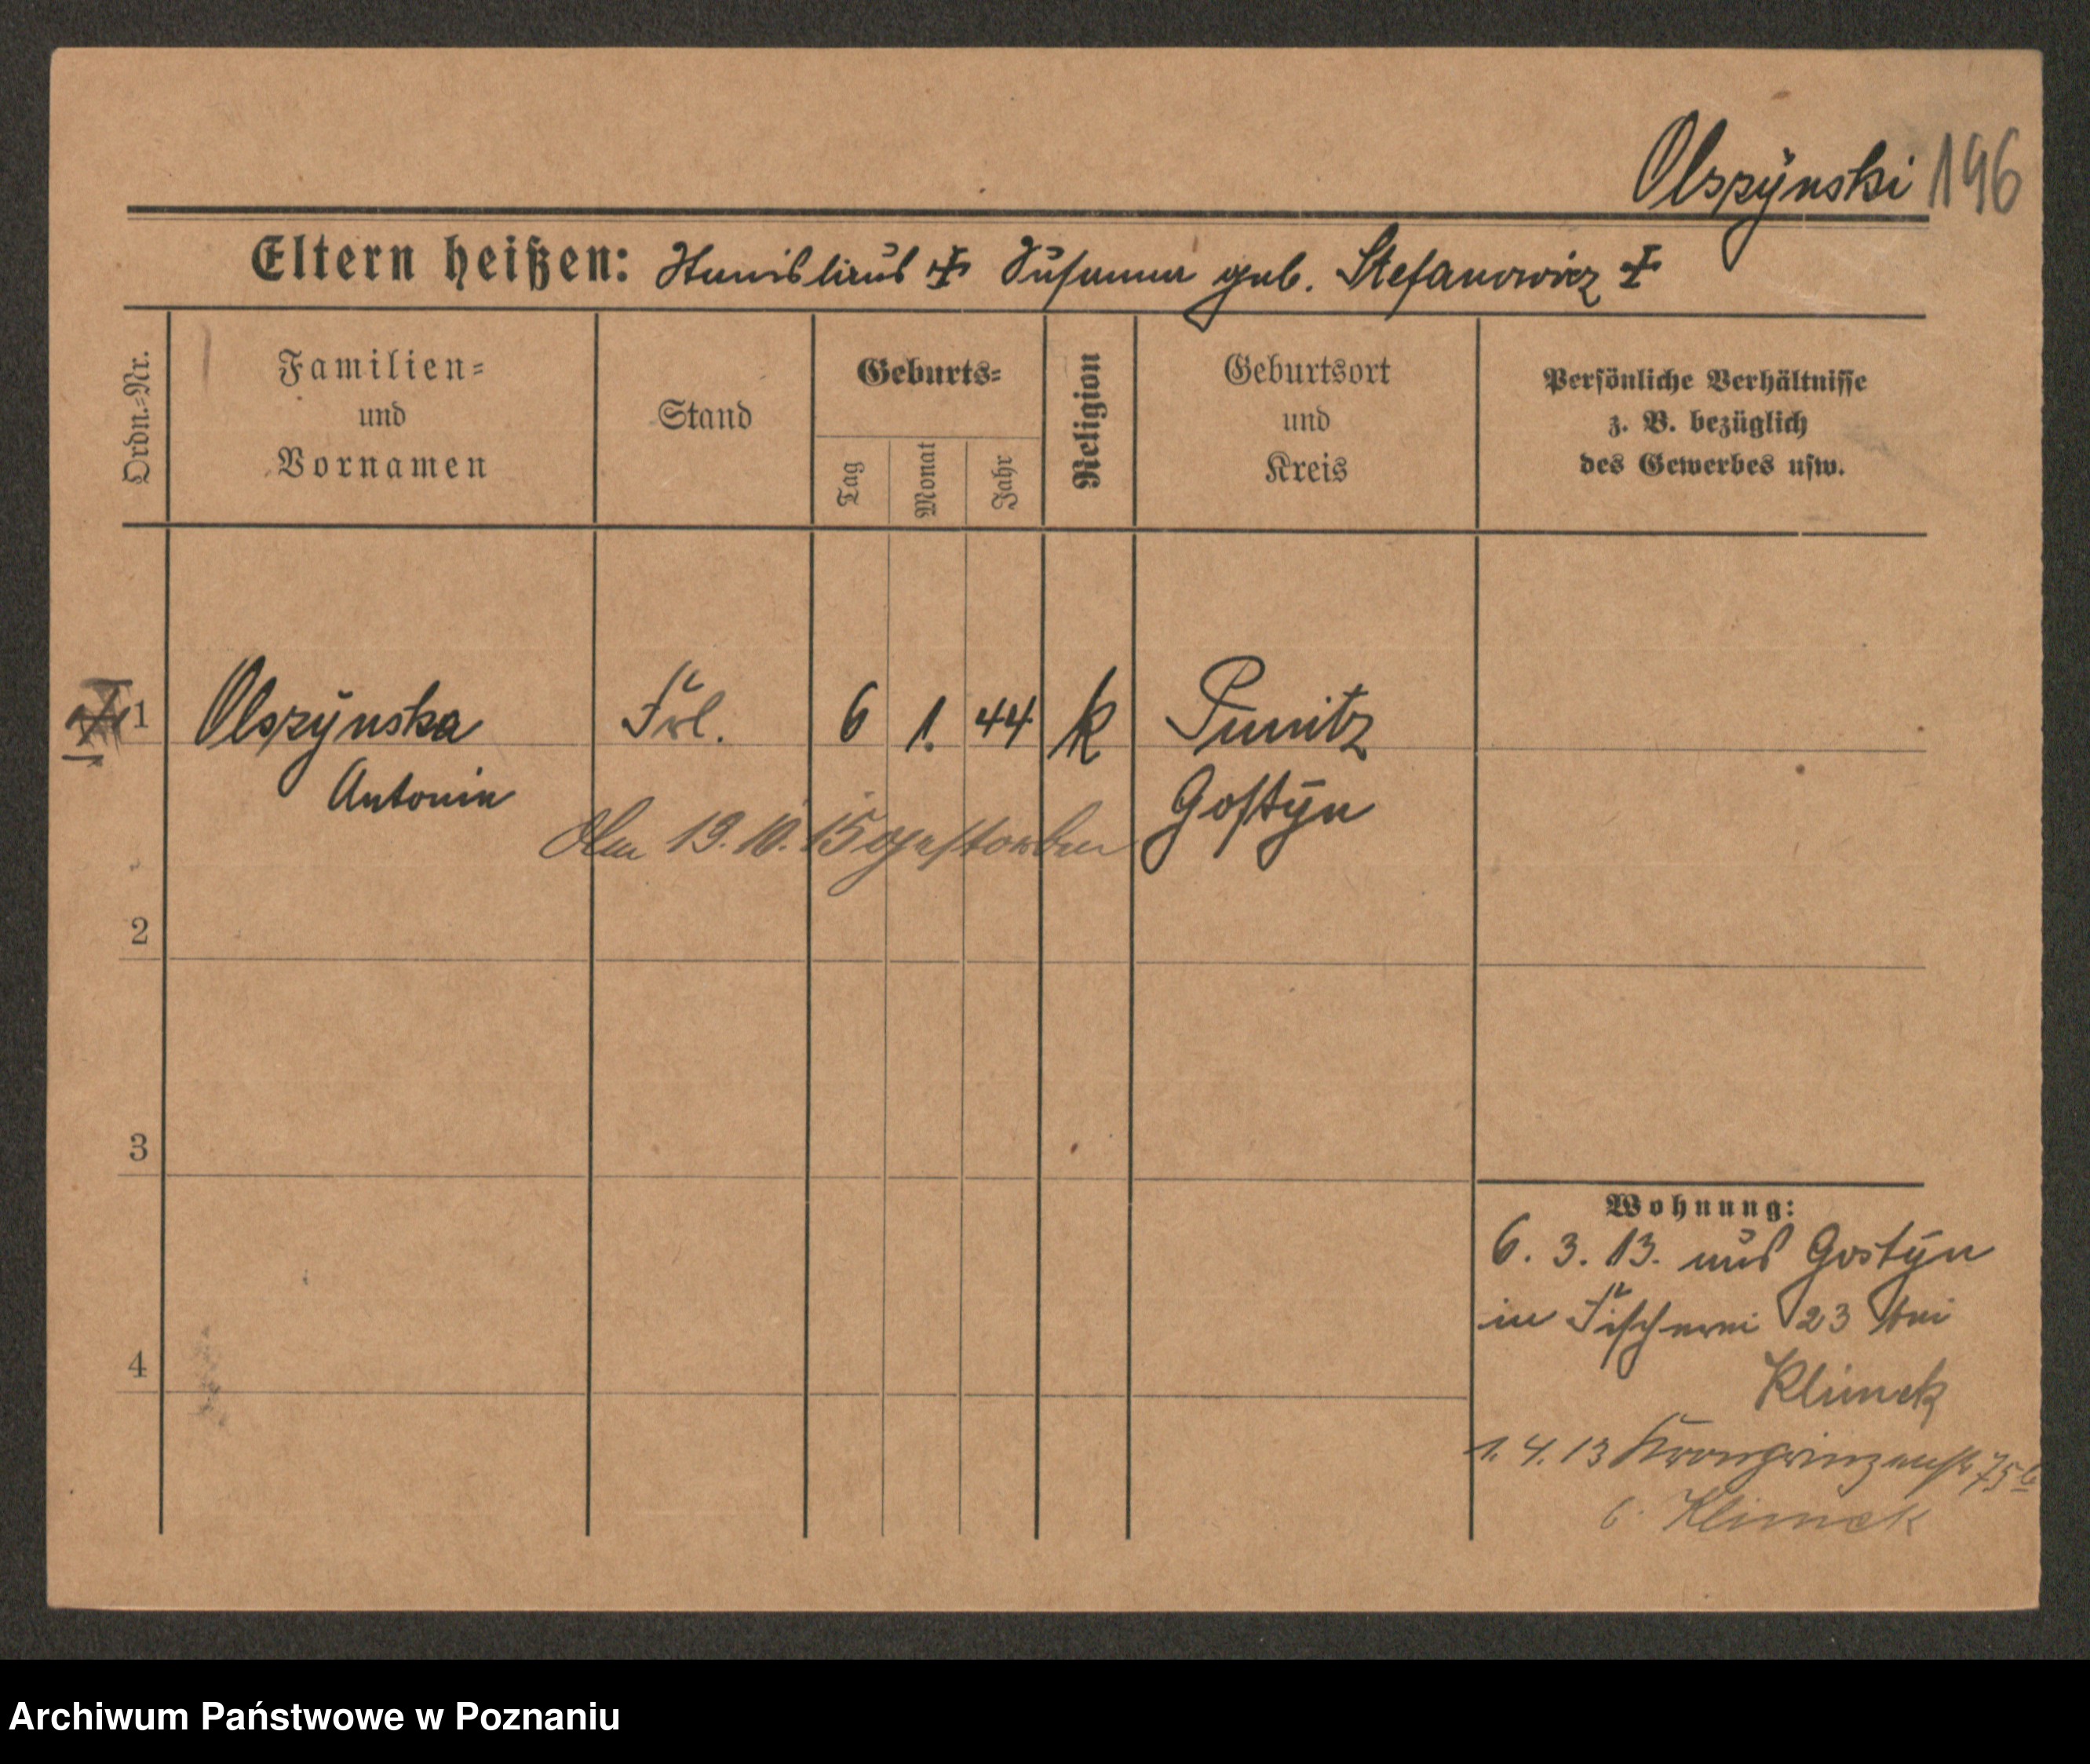 Olszÿnski 196
Eltern heißen: Stanislaus † Susanna geb. Stefanowicz †
Ordn.-Nr.
Familien-
und
Vornamen
Stand
Geburts-
Tag
Monat
Jahr
Religion
Geburtsort
und
Kreis
Persönliche Verhältnisse
z. B. bezüglich
des Gewerbes usw.
† 1 Olszÿnska Frl. 6 1. 44 k Punitz
Antonin Gostÿn
Am 19. 10. 15 gestorben
2
3
Wohnung:
6. 3. 13. aus Gostÿn
in Fischerei 23 bei
4
Klimek
1. 4. 13 Kronprinzenstr 75b
b. Klimek
Archiwum Państwowe w Poznaniu